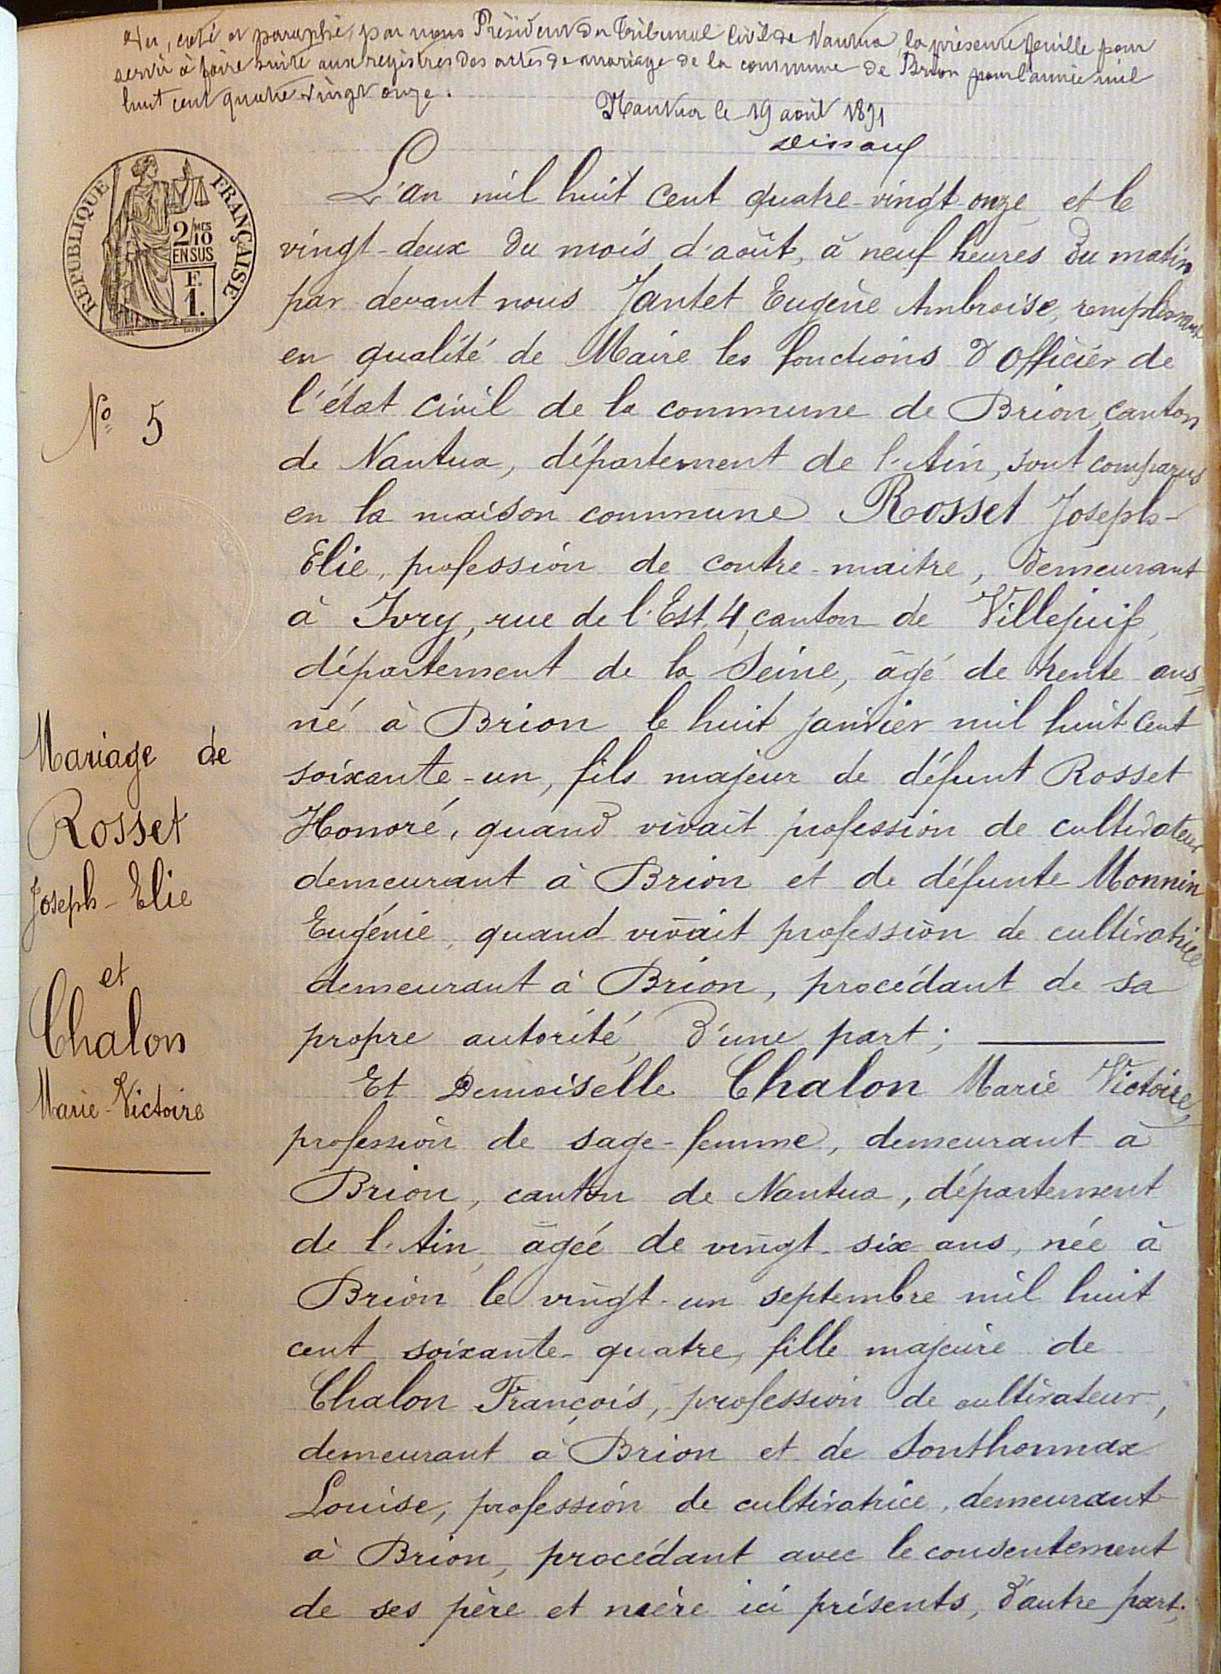 Vu, coté et paraphé par nous Président du Tribunal Civil de Nantua, la présente feuille pour
servir à faire suite aux registres des actes de mariage de la commune de Brion pour l'année mil
huit cent quatre vingt onze.
Nantua le 19 août 1891
REPUBLIQUE FRANÇAISE
2/10 MES
EN SUS
F.
1.
L'an mil huit cent quatre-vingt onze et le
vingt-deux du mois d'août, à neuf heures du matin
par devant nous Jantet Eugène Ambroise, remplissant
en qualité de Maire les fonctions d'officier de
l'état civil de la commune de Brion, canton
de Nantua, département de l'Ain, sont comparus
en la maison commune Rosset Joseph-
Elie, profession de contre-maitre, demeurant
à Ivry, rue de l'Est, 4, canton de Villejuif,
département de la Seine, âgé de trente ans,
né à Brion le huit janvier mil huit cent
soixante-un, fils majeur de défunt Rosset
Honoré, quand vivait profession de cultivateur
demeurant à Brion et de défunte Monnin
Eugénie, quand vivait profession de cultivatrice
demeurant à Brion, procédant de sa
propre autorité, d'une part;
Et Demoiselle Chalon Marie Victoire,
profession de sage-femme, demeurant à
Brion, canton de Nantua, département
de l'Ain, âgée de vingt-six ans, née à
Brion le vingt-un septembre mil huit
cent soixante-quatre, fille majeure de
Chalon François, profession de cultivateur,
demeurant à Brion et de Sonthonnax
Louise, profession de cultivatrice, demeurant
à Brion, procédant avec le consentement
de ses père et mère ici présents, d'autre part;
N° 5
Mariage de
Rosset
Joseph-Elie
et
Chalon
Marie-Victoire